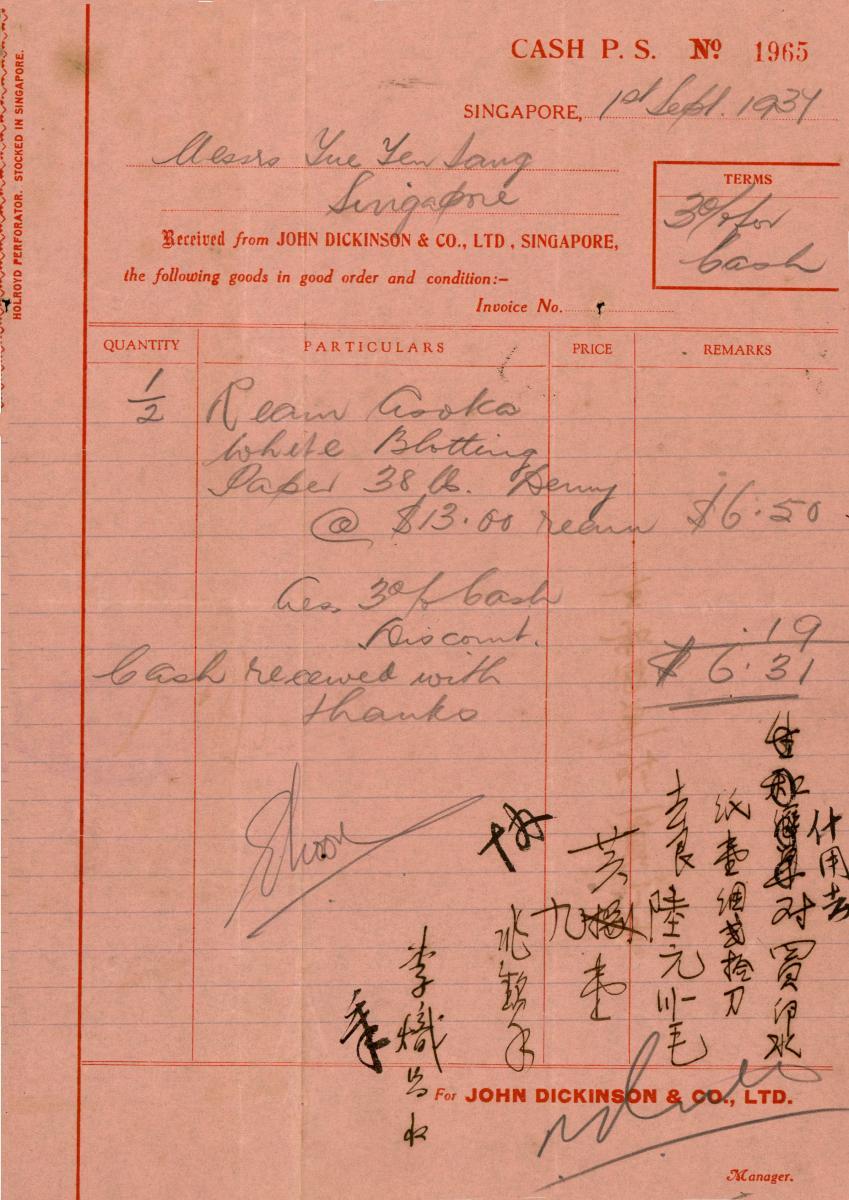 HOLROYD PERFORATOR. STOCKED IN SINGAPORE.
CASH P. S. Nº 1965
SINGAPORE, 1st Sept. 1937
Messrs Yue Yen Sang
Singapore
TERMS
3% for
Cash
Received from JOHN DICKINSON & CO., LTD, SINGAPORE,
the following goods in good order and condition:-
Invoice No.
QUANTITY PARTICULARS PRICE REMARKS
1/2 Ream Asoka
White Blotting
Paper 38 lb. Demy
@ $13.00 ream $6.50
Less 3% Cash
Discount. .19
Cash received with $6.31
thanks
什用去
对買印水
紙壹綑貳拾刀
去艮陸元川一毛
九 壹
李熾
For JOHN DICKINSON & CO., LTD.
Manager.